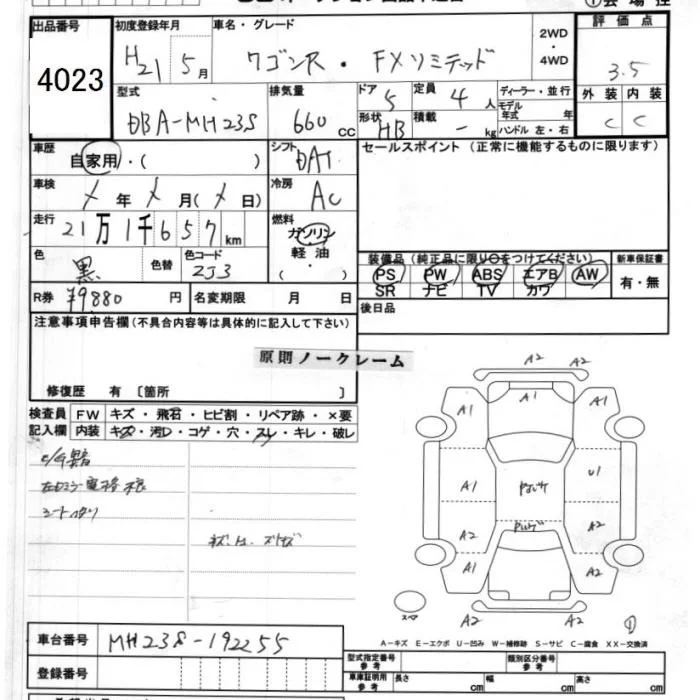 出品番号
4023
初度登録年月
H21 5月
車名・グレード
ワゴンR・FXリミテッド
2WD
・
4WD
評価点
3.5
外装 内装
C C
型式
DBA-MH23S
排気量
660 cc
ドア 5
定員 4人
形状 HB
積載 - kg
ディーラー・並行
モデル年式 年
ハンドル 左・右
車歴
自家用・( )
シフト
DAT
セールスポイント(正常に機能するものに限ります)
車検
X年X月(X日)
冷房
AC
走行
21万1千657km
燃料
ガソリン
軽油
・( )
色
黒
色替
色コード
ZJ3
装備品(純正品に限り○をつけてください)
PS PW ABS エアB AW
SR ナビ TV カワ
新車保証書
有・無
R券 ¥9880円
名変期限 月 日
後日品
注意事項申告欄(不具合内容等は具体的に記入して下さい)
原則ノークレーム
修復歴 有 〔箇所 〕
検査員
記入欄
FW キズ・飛石・ヒビ割・リペア跡・×要
内装 キズ・汚レ・コゲ・穴・スレ・キレ・破レ
A2 A2
A1 A1 A1
A1 U1
A2 A2
A1 A2
A2 A2
スペア
A-キズ E-エクボ U-凹み W-補修跡 S-サビ C-腐食 XX-交換済
車台番号
MH23S-192255
登録番号
型式指定番号 参考
類別区分番号 参考
車庫証明用 参考
長さ cm 幅 cm 高さ cm